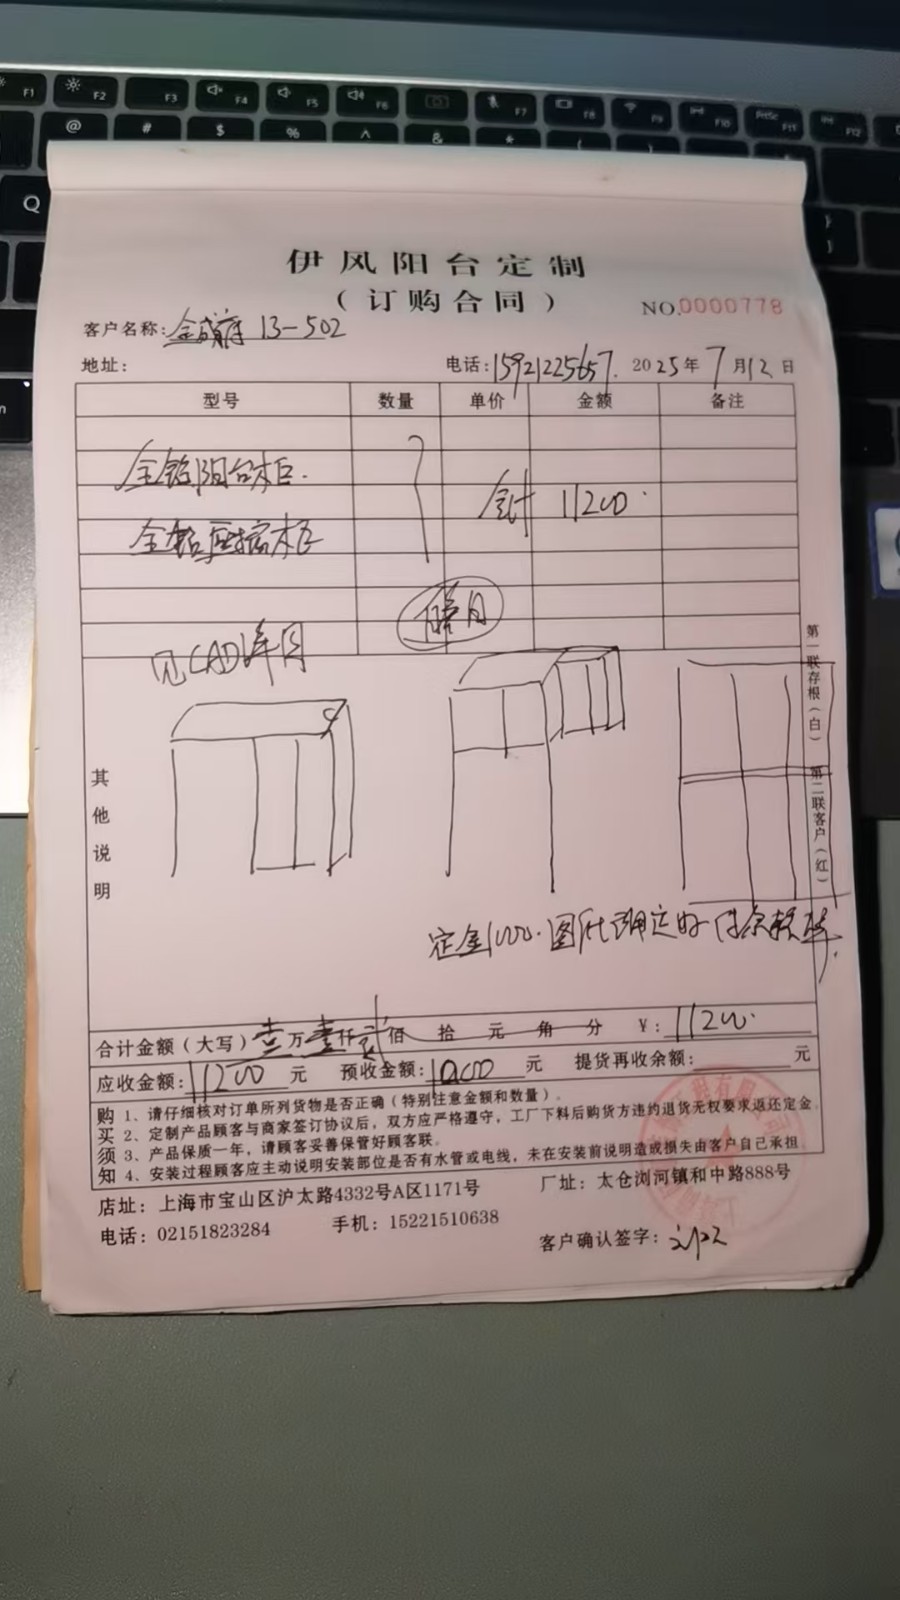 伊风阳台定制
（订购合同）
NO.0000778
客户名称: 13-502
地址:
电话:15921225657. 2025年7月12日
型号 数量 单价 金额 备注
全铝阳台柜.
合计 11200.
全铝 柜
见CAD详图
第一联存根（白） 第二联客户（红）
其他说明
定金1000.图纸确定好付余款
合计金额（大写）壹万壹仟贰佰 拾 元 角 分 ¥: 11200.
应收金额: 11200 元 预收金额: 1000 元 提货再收余额: 元
购买须知
1、请仔细核对订单所列货物是否正确（特别注意金额和数量）。
2、定制产品顾客与商家签订协议后，双方应严格遵守，工厂下料后购货方违约退货无权要求返还定金。
3、产品保质一年，请顾客妥善保管好顾客联。
4、安装过程顾客应主动说明安装部位是否有水管或电线，未在安装前说明造成损失由客户自己承担。
店址: 上海市宝山区沪太路4332号A区1171号
厂址: 太仓浏河镇和中路888号
电话: 02151823284 手机: 15221510638
客户确认签字:
F1 F2 F3 F4 F5 F6 F7 F8 F9 F10 F11 F12
@ # $ % ^ & * (
Q